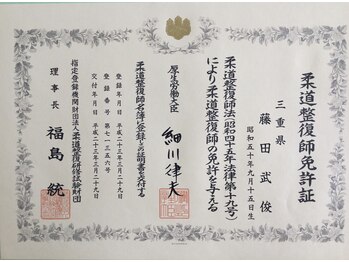 柔道整復師免許証
三重県
藤田武俊
昭和五十年九月十五日生
柔道整復師法(昭和四十五年法律第十九号)
により柔道整復師の免許を与える
厚生労働大臣 細川律夫
柔道整復師名簿に登録しこの証明書を交付する
登録年月日 平成二十三年三月二十九日
登録番号 第七一三五六号
交付年月日 平成二十三年三月二十九日
指定登録機関財団法人柔道整復研修試験財団
理事長 福島統